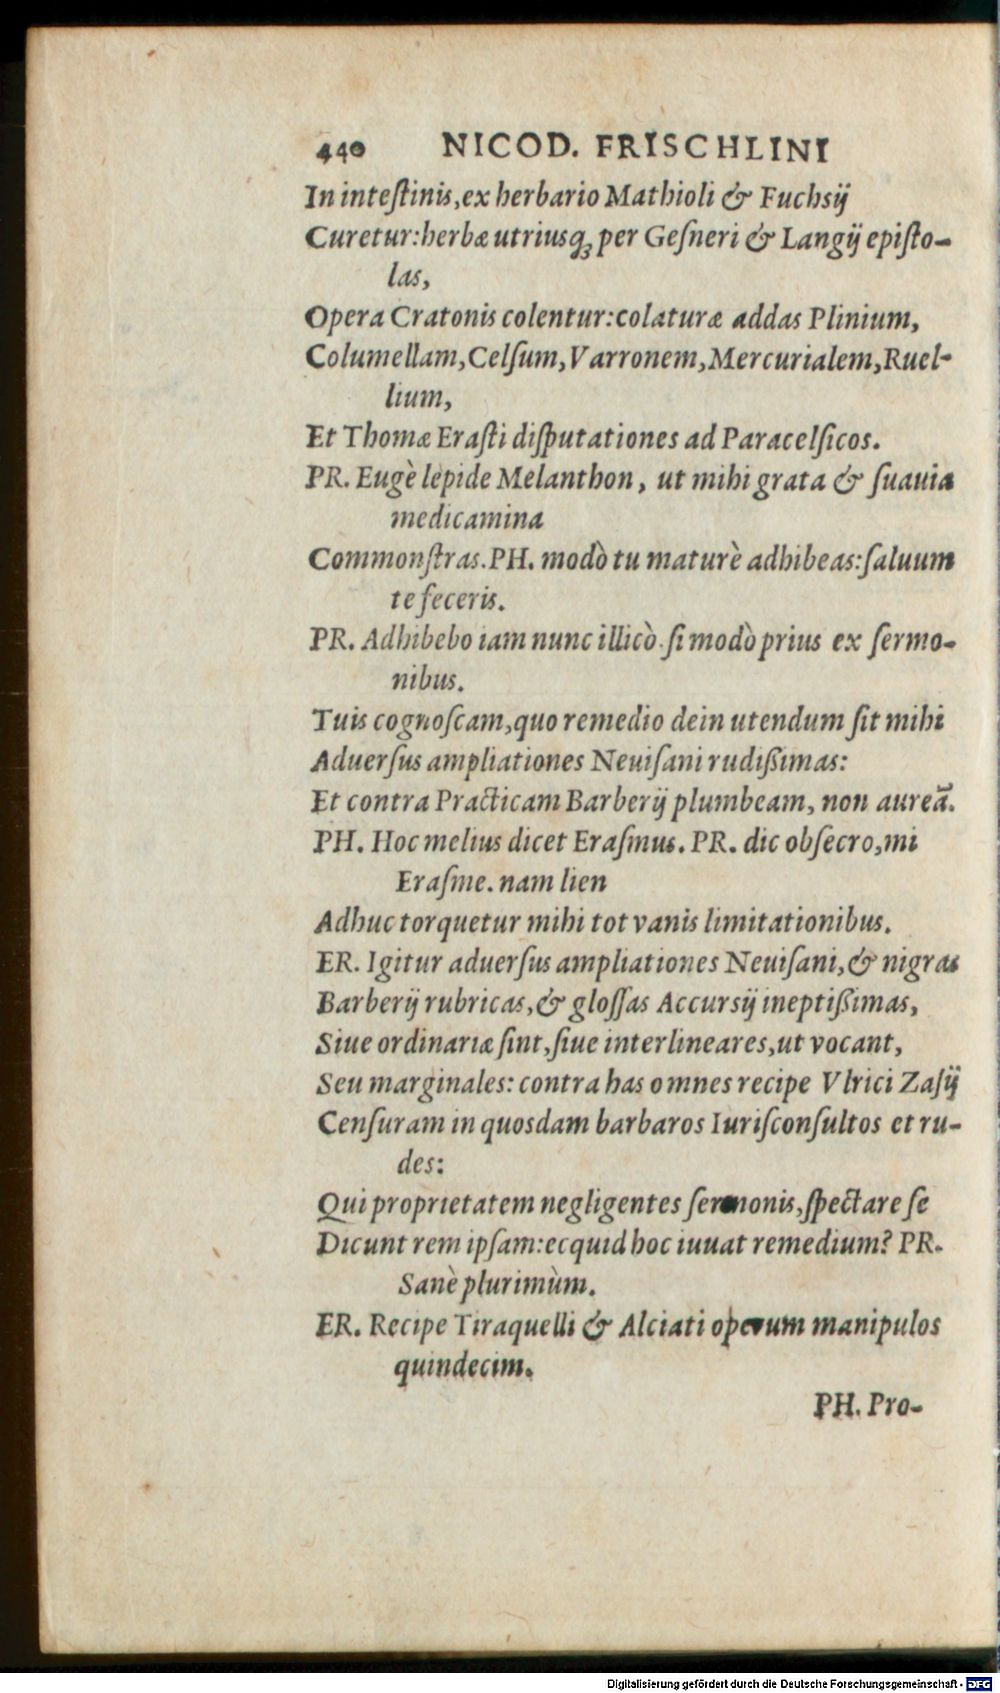 440 NICOD. FRISCHLINI
In inteſtinis,ex herbario Mathioli & Fuchsij
Curetur:herbæ utriusqꝫ per Geſneri & Langij epiſto-
las,
Opera Cratonis colentur:colaturæ addas Plinium,
Columellam,Celſum,Varronem,Mercurialem,Ruel-
lium,
Et Thomæ Eraſti diſputationes ad Paracelſicos.
PR. Eugè lepide Melanthon, ut mihi grata & ſuauia
medicamina
Commonſtras.PH. modò tu maturè adhibeas:ſaluum
te feceris.
PR. Adhibebo iam nunc illicò.ſi modò prius ex ſermo-
nibus.
Tuis cognoſcam,quo remedio dein utendum ſit mihi
Aduerſus ampliationes Neuiſani rudißimas:
Et contra Practicam Barberij plumbeam, non aureã.
PH. Hoc melius dicet Eraſmus. PR. dic obſecro,mi
Eraſme. nam lien
Adhuc torquetur mihi tot vanis limitationibus.
ER. Igitur aduerſus ampliationes Neuiſani,& nigras
Barberij rubricas,& gloſſas Accursij ineptißimas,
Siue ordinariæ ſint,ſiue interlineares,ut vocant,
Seu marginales: contra has omnes recipe Vlrici Zaſij
Cenſuram in quosdam barbaros Iuriſconſultos et ru-
des:
Qui proprietatem negligentes ſermonis,ſpectare ſe
Dicunt rem ipſam:ecquid hoc iuuat remedium? PR.
Sanè plurimùm.
ER. Recipe Tiraquelli & Alciati operum manipulos
quindecim.
PH. Pro-
Digitalisierung gefördert durch die Deutsche Forschungsgemeinschaft - DFG